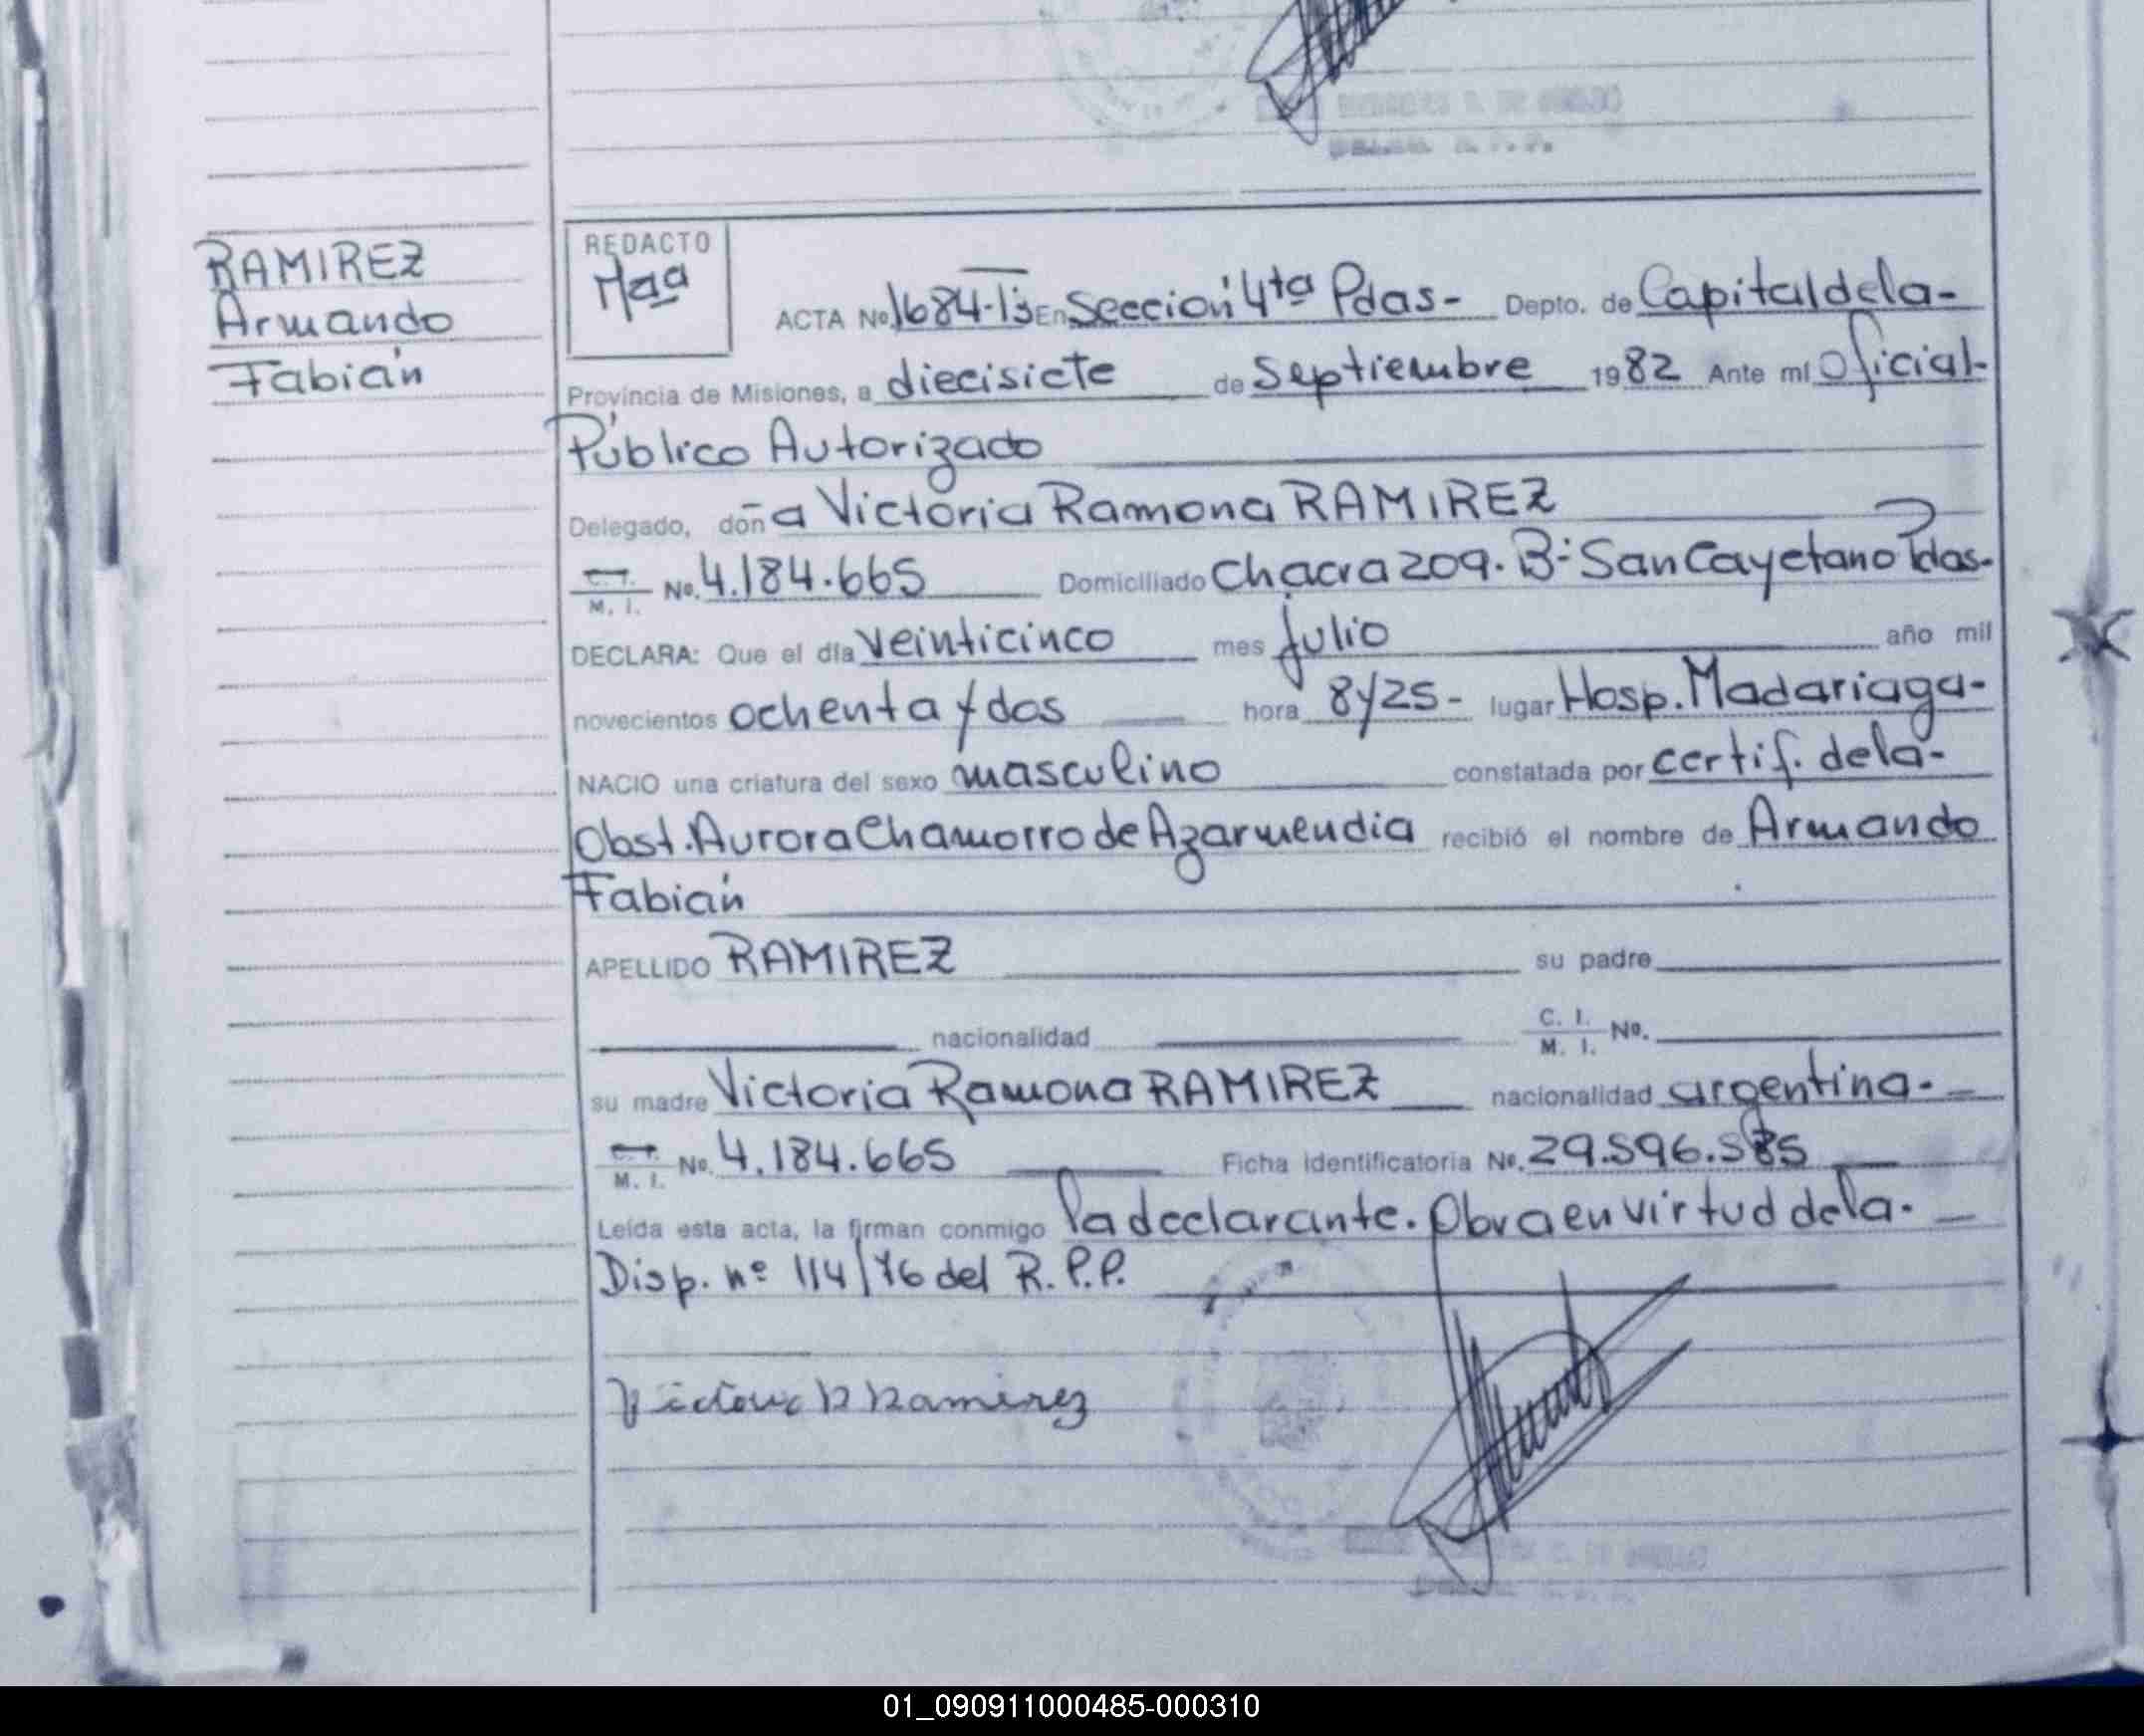 RAMIREZ
Armando
Fabián
REDACTO
Maa
ACTA No 1684-13 En Sección 4ta Pdas- Depto. de Capital de la-
Provincia de Misiones, a diecisiete de Septiembre 1982 Ante mí Oficial-
Público Autorizado
Delegado, doña Victoria Ramona RAMIREZ
C. I. M. I. No. 4.184.665 Domiciliado Chacra 209. B: San Cayetano Pdas.
DECLARA: Que el día veinticinco mes julio año mil
novecientos ochenta y dos hora 8 y 25- lugar Hosp. Madariaga-
NACIO una criatura del sexo masculino constatada por certif. de la-
Obst. Aurora Chamorro de Azarmendia recibió el nombre de Armando
Fabián
APELLIDO RAMIREZ su padre
nacionalidad C. I. M. I. No.
su madre Victoria Ramona RAMIREZ nacionalidad argentina.-
C. I. M. I. No. 4.184.665 Ficha identificatoria No. 29.596.585
Leída esta acta, la firman conmigo la declarante. Obra en virtud de la.
Disp. nº 114/76 del R.P.P.
Victoria R Ramirez
01_090911000485-000310